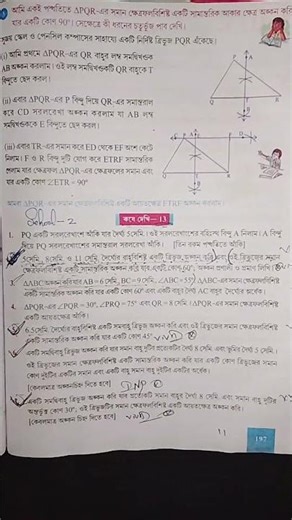 আমি একই পদ্ধতিতে ΔPQR-এর সমান ক্ষেত্রফলবিশিষ্ট একটি সামান্তরিক আকার ক্ষেত্র অঙ্কন করি
যার একটি কোণ 90°। সেক্ষেত্রে কী ধরনের চতুর্ভুজ পাব দেখি।
স্কেল ও পেনসিল কম্পাসের সাহায্যে একটি নির্দিষ্ট ত্রিভুজ PQR এঁকেছে।
(i) আমি প্রথমে ΔPQR-এর QR বাহুর লম্ব সমদ্বিখণ্ডক
AB অঙ্কন করলাম। ওই লম্ব সমদ্বিখণ্ডকটি QR বাহুকে T
বিন্দুতে ছেদ করল।
(ii) এবার ΔPQR-এর P বিন্দু দিয়ে QR-এর সমান্তরাল
করে CD সরলরেখা অঙ্কন করলাম যা AB লম্ব
সমদ্বিখণ্ডককে E বিন্দুতে ছেদ করল।
(iii) এবার TR-এর সমান করে ED থেকে EF অংশ কেটে
নিলাম। F ও R বিন্দু দুটি যোগ করে ETRF সামান্তরিক
পেলাম যার ক্ষেত্রফল ΔPQR-এর ক্ষেত্রফলের সমান এবং
যার একটি কোণ ∠ETR = 90°
আমরা ΔPQR-এর সমান ক্ষেত্রফলবিশিষ্ট একটি আয়তক্ষেত্র ETRF অঙ্কন করলাম।
কষে দেখি— 13
1. PQ একটি সরলরেখাংশ আঁকি যার দৈর্ঘ্য 5 সেমি.। ওই সরলরেখাংশের বহিঃস্থ বিন্দু A নিলাম। A বিন্দু
দিয়ে PQ সরলরেখাংশের সমান্তরাল সরলরেখা আঁকি। [তিন রকম পদ্ধতিতে আঁকি]
5 সেমি., 8 সেমি. ও 11 সেমি. দৈর্ঘ্যের বাহুবিশিষ্ট একটি ত্রিভুজ অঙ্কন করি এবং ওই ত্রিভুজের সমান
ক্ষেত্রফলবিশিষ্ট একটি সামান্তরিক অঙ্কন করি যার একটি কোণ 60°। [অঙ্কন প্রণালী ও প্রমাণ লিখি]
3. ΔABC অঙ্কন করি যার AB = 6 সেমি., BC = 9 সেমি., ∠ABC = 55°; ΔABC-এর সমান ক্ষেত্রফলবিশিষ্ট
একটি সামান্তরিক অঙ্কন করি যার একটি কোণ 60° এবং একটি বাহুর দৈর্ঘ্য AC বাহুর দৈর্ঘ্যের অর্ধেক।
4. ΔPQR-এর ∠PQR = 30°, ∠PRQ = 75° এবং QR = 8 সেমি.। ΔPQR-এর সমান ক্ষেত্রফলবিশিষ্ট
একটি আয়তক্ষেত্র আঁকি।
6.5 সেমি. দৈর্ঘ্যের বাহুবিশিষ্ট একটি সমবাহু ত্রিভুজ অঙ্কন করি এবং ওই ত্রিভুজের সমান ক্ষেত্রফলবিশিষ্ট
একটি সামান্তরিক অঙ্কন করি যার একটি কোণ 45°
একটি সমদ্বিবাহু ত্রিভুজের সমান বাহু দুটির প্রত্যেকটির দৈর্ঘ্য 8 সেমি. এবং ভূমির দৈর্ঘ্য 5 সেমি.।
[কেবলমাত্র অঙ্কনচিহ্ন দিতে হবে]
একটি সমদ্বিবাহু ত্রিভুজ অঙ্কন করি যার প্রত্যেকটি সমান বাহুর দৈর্ঘ্য 8 সেমি. এবং সমান বাহু দুটির
অন্তর্ভুক্ত কোণ 30°, ওই ত্রিভুজটির সমান ক্ষেত্রফলবিশিষ্ট একটি আয়তক্ষেত্র অঙ্কন করি।
[কেবলমাত্র অঙ্কন চিহ্ন দিতে হবে]
197